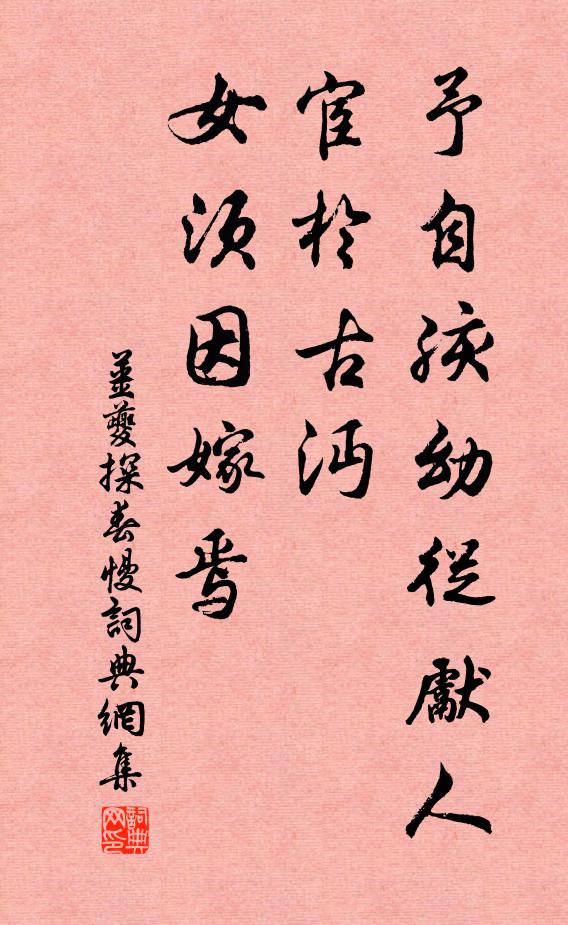 予自孩幼從獻人
宦於古沔
女須因嫁焉
薑夔探春慢詞典網集
詞典网印